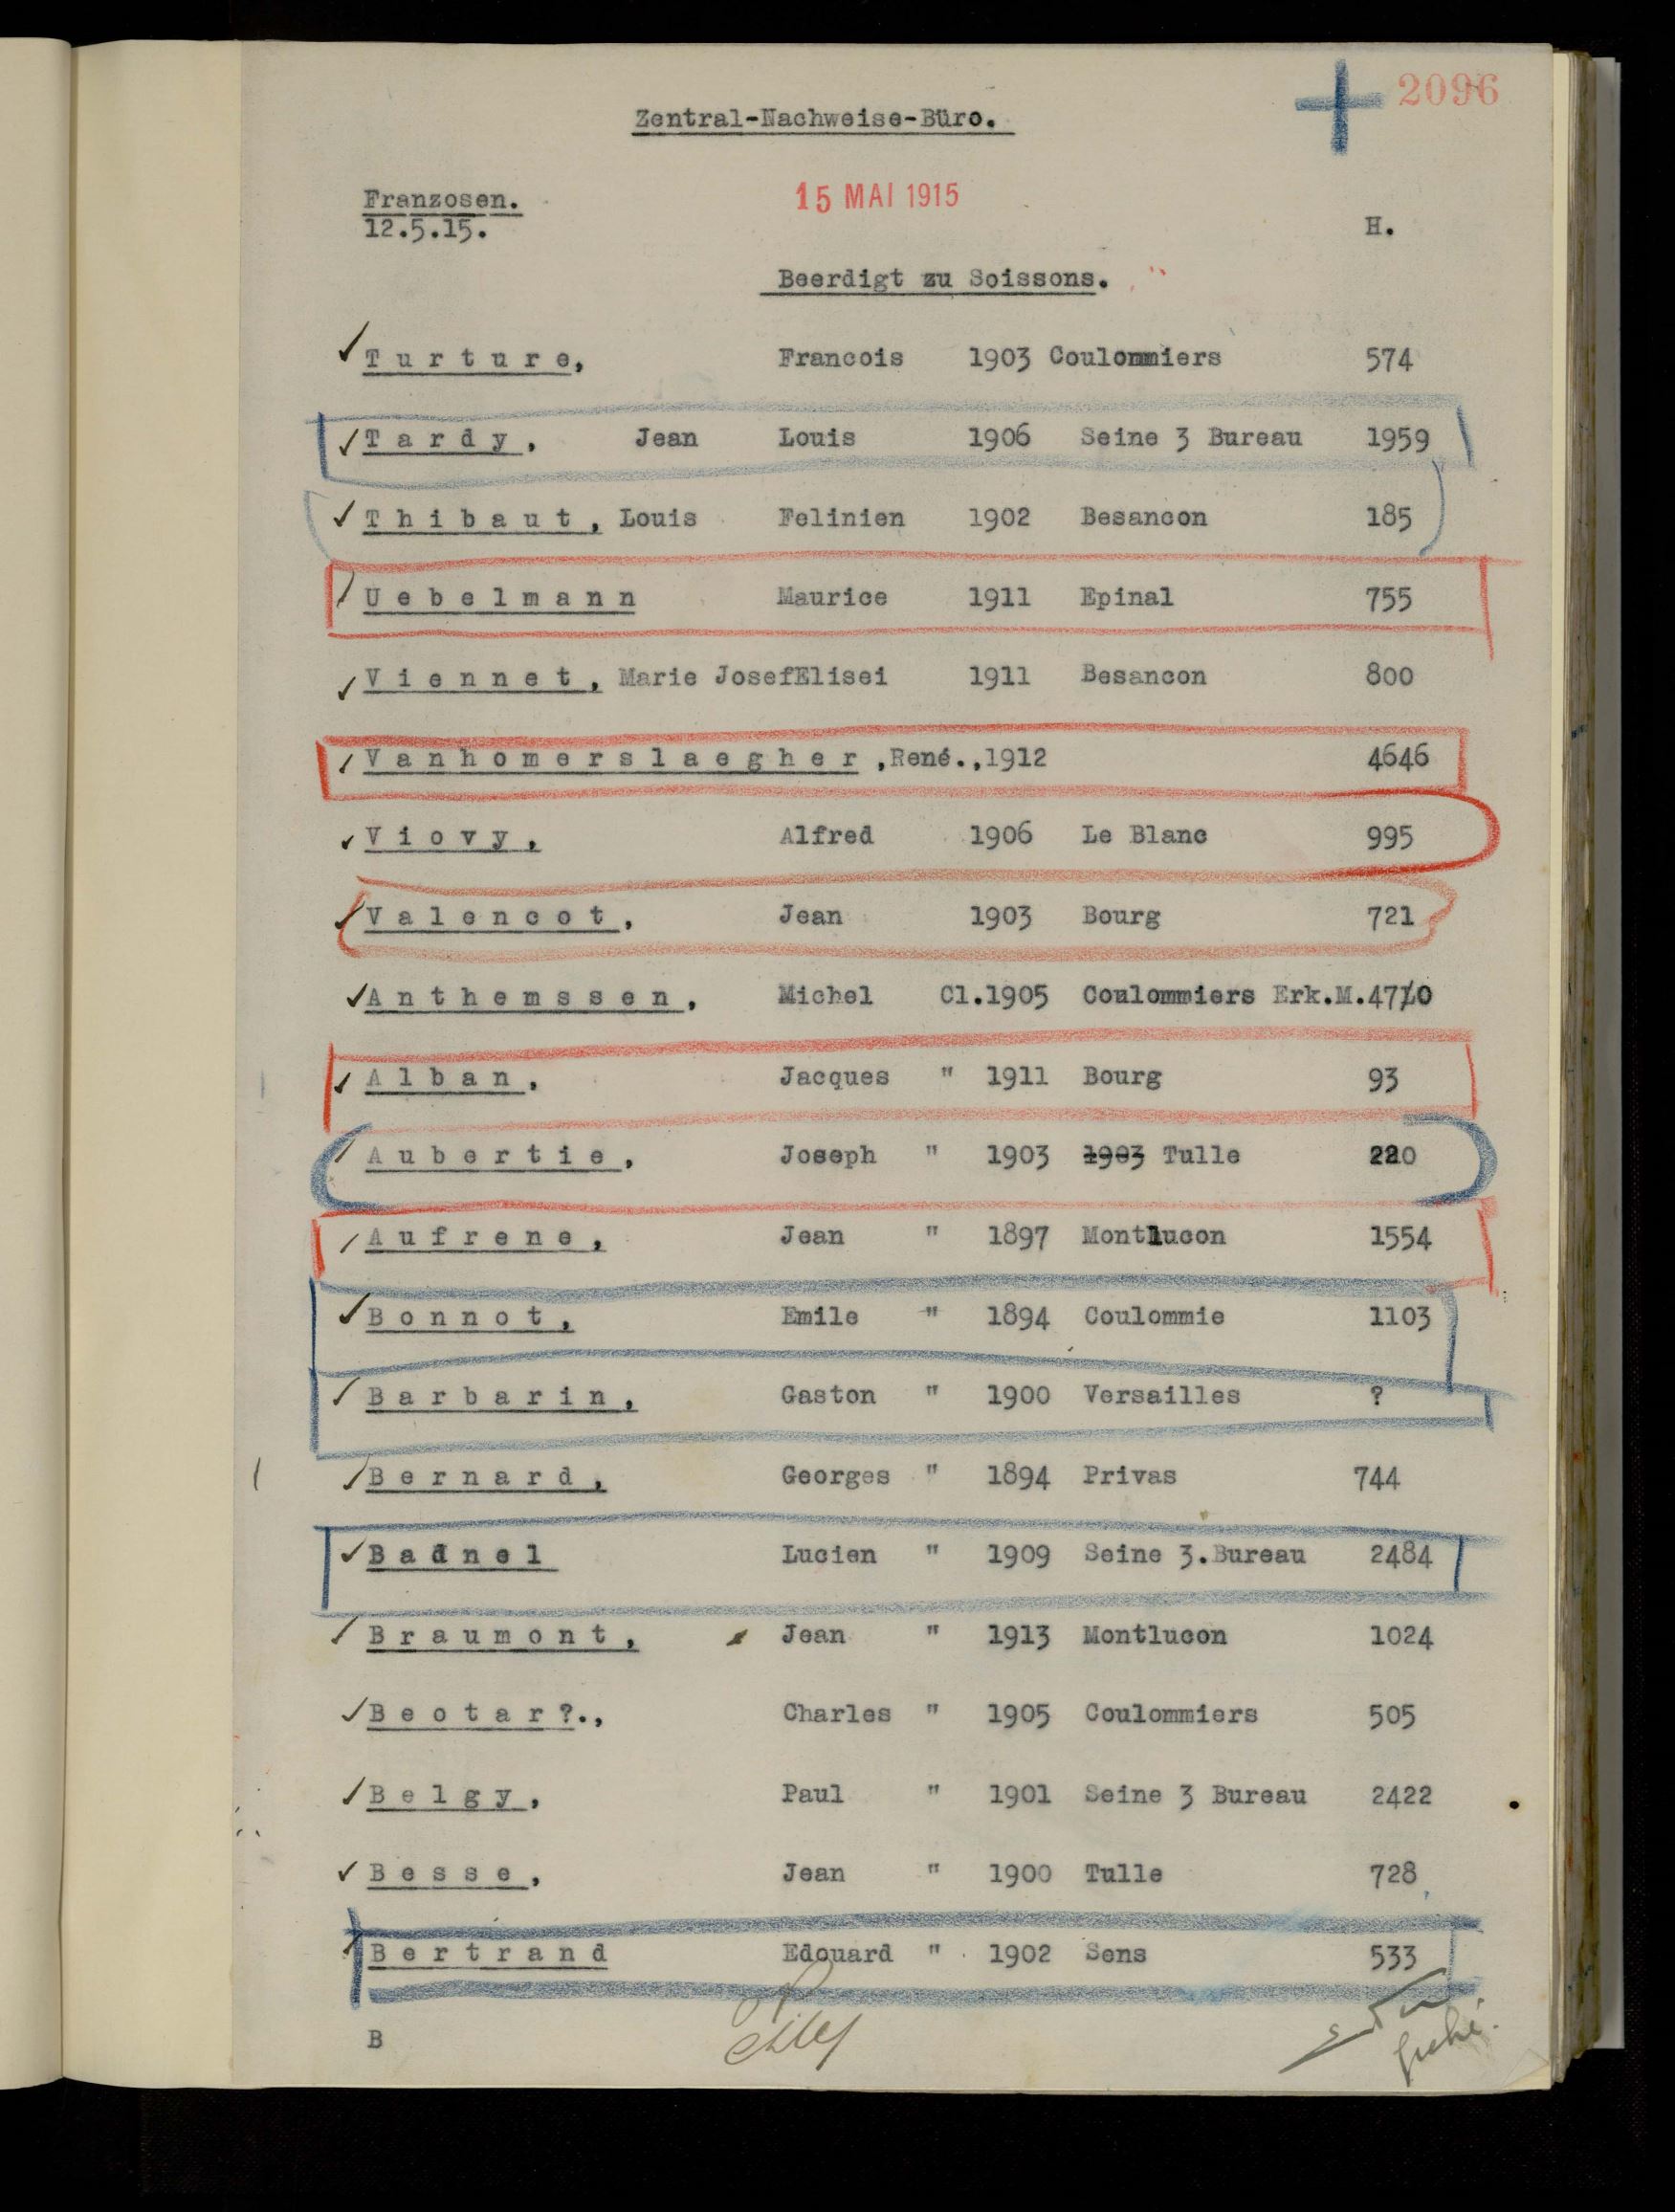 2096
Zentral-Nachweise-Büro.
Franzosen. 15 MAI 1915
12.5.15. H.
Beerdigt zu Soissons.
Turture, Francois 1903 Coulommiers 574
Tardy, Jean Louis 1906 Seine 3 Bureau 1959
Thibaut, Louis Felinien 1902 Besancon 185
Uebelmann Maurice 1911 Epinal 755
Viennet, Marie JosefElisei 1911 Besancon 800
Vanhomerslaegher,René.,1912 4646
Viovy, Alfred 1906 Le Blanc 995
Valencot, Jean 1903 Bourg 721
Anthemssen, Michel Cl.1905 Coulommiers Erk.M.4710
Alban, Jacques " 1911 Bourg 93
Aubertie, Joseph " 1903 1903 Tulle 220
Aufrene, Jean " 1897 Montlucon 1554
Bonnot, Emile " 1894 Coulommie 1103
Barbarin, Gaston " 1900 Versailles ?
Bernard, Georges " 1894 Privas 744
Badnel Lucien " 1909 Seine 3.Bureau 2484
Braumont, Jean " 1913 Montlucon 1024
Beotar?., Charles " 1905 Coulommiers 505
Belgy, Paul " 1901 Seine 3 Bureau 2422
Besse, Jean " 1900 Tulle 728
Bertrand Edouard " 1902 Sens 533
B